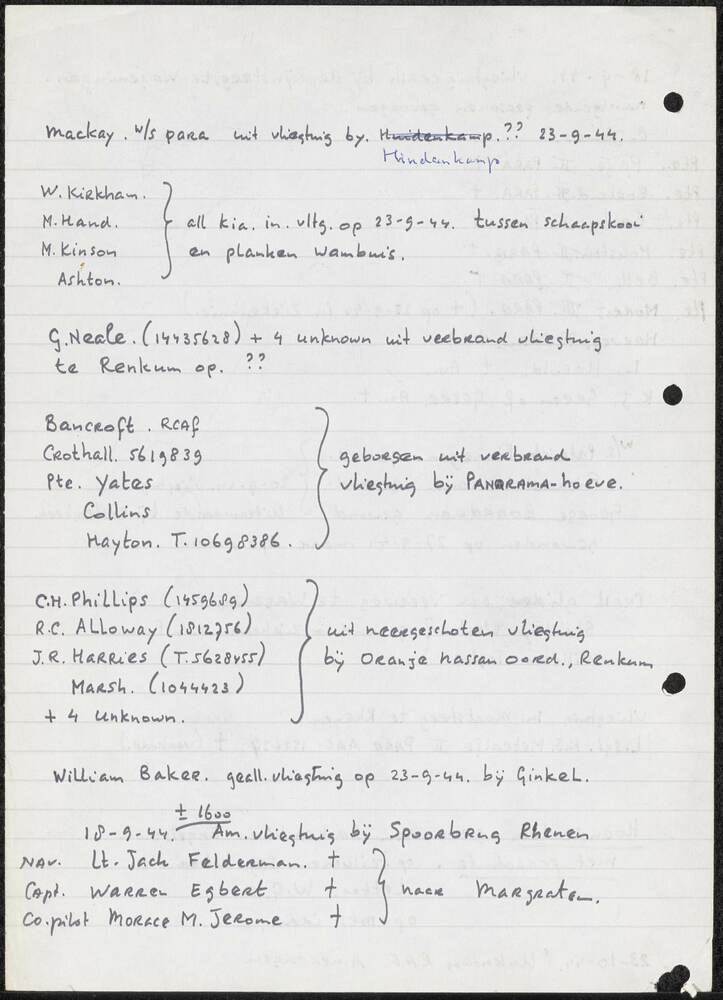 Mackay. W/S para uit vliegtuig by. Huidenkamp.?? 23-9-44.
Hindenkamp
W. Kirkham.
M. Hand.
M. Kinson
Ashton.
all kia. in. vltg. op 23-9-44. tussen schaapskooi
en planken wambuis.
G. Neale. (14435628) + 4 unknown uit verbrand vliegtuig
te Renkum op. ??
Bancroft. RCAF
Crothall. 5619839
Pte. Yates
Collins
Hayton. T. 10698386.
geborgen uit verbrand
vliegtuig bij PANORAMA-hoeve.
C.H. Phillips (1459689)
R.C. Alloway (1812756)
J.R. Harries (T.5628455)
Marsh. (1044423)
+ 4 unknown.
uit neergeschoten vliegtuig
bij Oranje nassau oord., Renkum
William Baker. geall. vliegtuig op 23-9-44. bij Ginkel.
± 1600
18-9-44. Am. vliegtuig bij Spoorbrug Rhenen
Nav. Lt. Jack Felderman. †
Capt. Warren Egbert †
Co.pilot Morace M. Jerome †
naar Margraten.